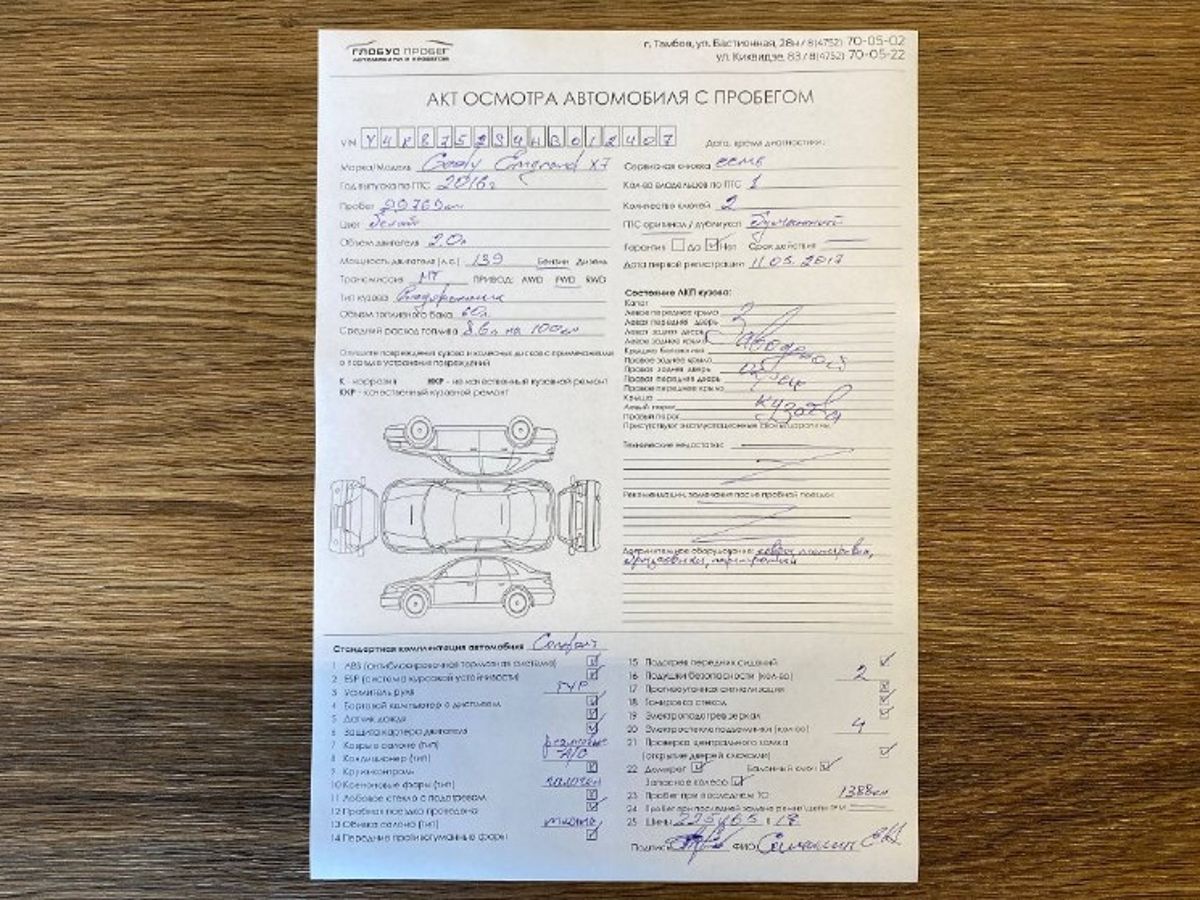 ГЛОБУС ПРОБЕГ
АВТОМОБИЛИ С ПРОБЕГОМ
г. Тамбов, ул. Бастионная, 28м / 8(4752) 70-05-02
ул. Киквидзе, 83 / 8(4752) 70-05-22
АКТ ОСМОТРА АВТОМОБИЛЯ С ПРОБЕГОМ
VIN Y4K8752S4HB012407
Дата, время диагностики:
Марка/Модель Geely Emgrand X7
Год выпуска по ПТС 2016г
Пробег 29769км
Цвет белый
Объем двигателя 2.0л
Мощность двигателя (л.с.) 139 Бензин Дизель
Трансмиссия МТ ПРИВОД: AWD FWD RWD
Тип кузова Внедорожник
Объем топливного бака 60л
Средний расход топлива 8.6л на 100км
Опишите повреждения кузова и колесных дисков с примечанием
о порядке устранения повреждений
К - коррозия НКР - не качественный кузовной ремонт
ККР - качественный кузовной ремонт
Сервисная книжка есть
Кол-во владельцев по ПТС 1
Количество ключей 2
ПТС оригинал / дубликат
Гарантия Да Нет Срок действия
Дата первой регистрации 11.05.2017
Состояние ЛКП кузова:
Капот
Левое переднее крыло
Левая передняя дверь
Левая задняя дверь
Левое заднее крыло
Крышка багажника
Правое заднее крыло
Правая задняя дверь
Правая передняя дверь
Правое переднее крыло
Крыша
Левый порог
Правый порог
Заводской
окрас
кузова
Присутствуют эксплуатационные сколы и царапины
Технические недостатки:
Рекомендации, замечания после пробной поездки:
Дополнительное оборудование:
Стандартная комплектация автомобиля Comfort
1 ABS (антиблокировочная тормозная система)
2 ESP (система курсовой устойчивости)
3 Усилитель руля ГУР
4 Бортовой компьютер с дисплеем
5 Датчик дождя
6 Защита картера двигателя
7 Ковры в салоне (тип) резиновые
8 Кондиционер (тип) A/C
9 Круиз-контроль
10 Ксеноновые фары (тип) галоген
11 Лобовое стекло с подогревом
12 Пробная поездка проведена
13 Обивка салона (тип) ткань
14 Передние противотуманные фары
15 Подогрев передних сидений
16 Подушки безопасности (кол-во) 2
17 Противоугонная сигнализация
18 Тонировка стекол
19 Электроподогрев зеркал
20 Электростеклоподъемники (кол-во) 4
21 Проверка центрального замка
(открытие дверей ключами)
22 Домкрат Балонный ключ
Запасное колесо
23 Пробег при последнем ТО
24 Пробег при последней замене ремня/цепи ГРМ
25 Шины 225 /65 R 17
Подпись ФИО